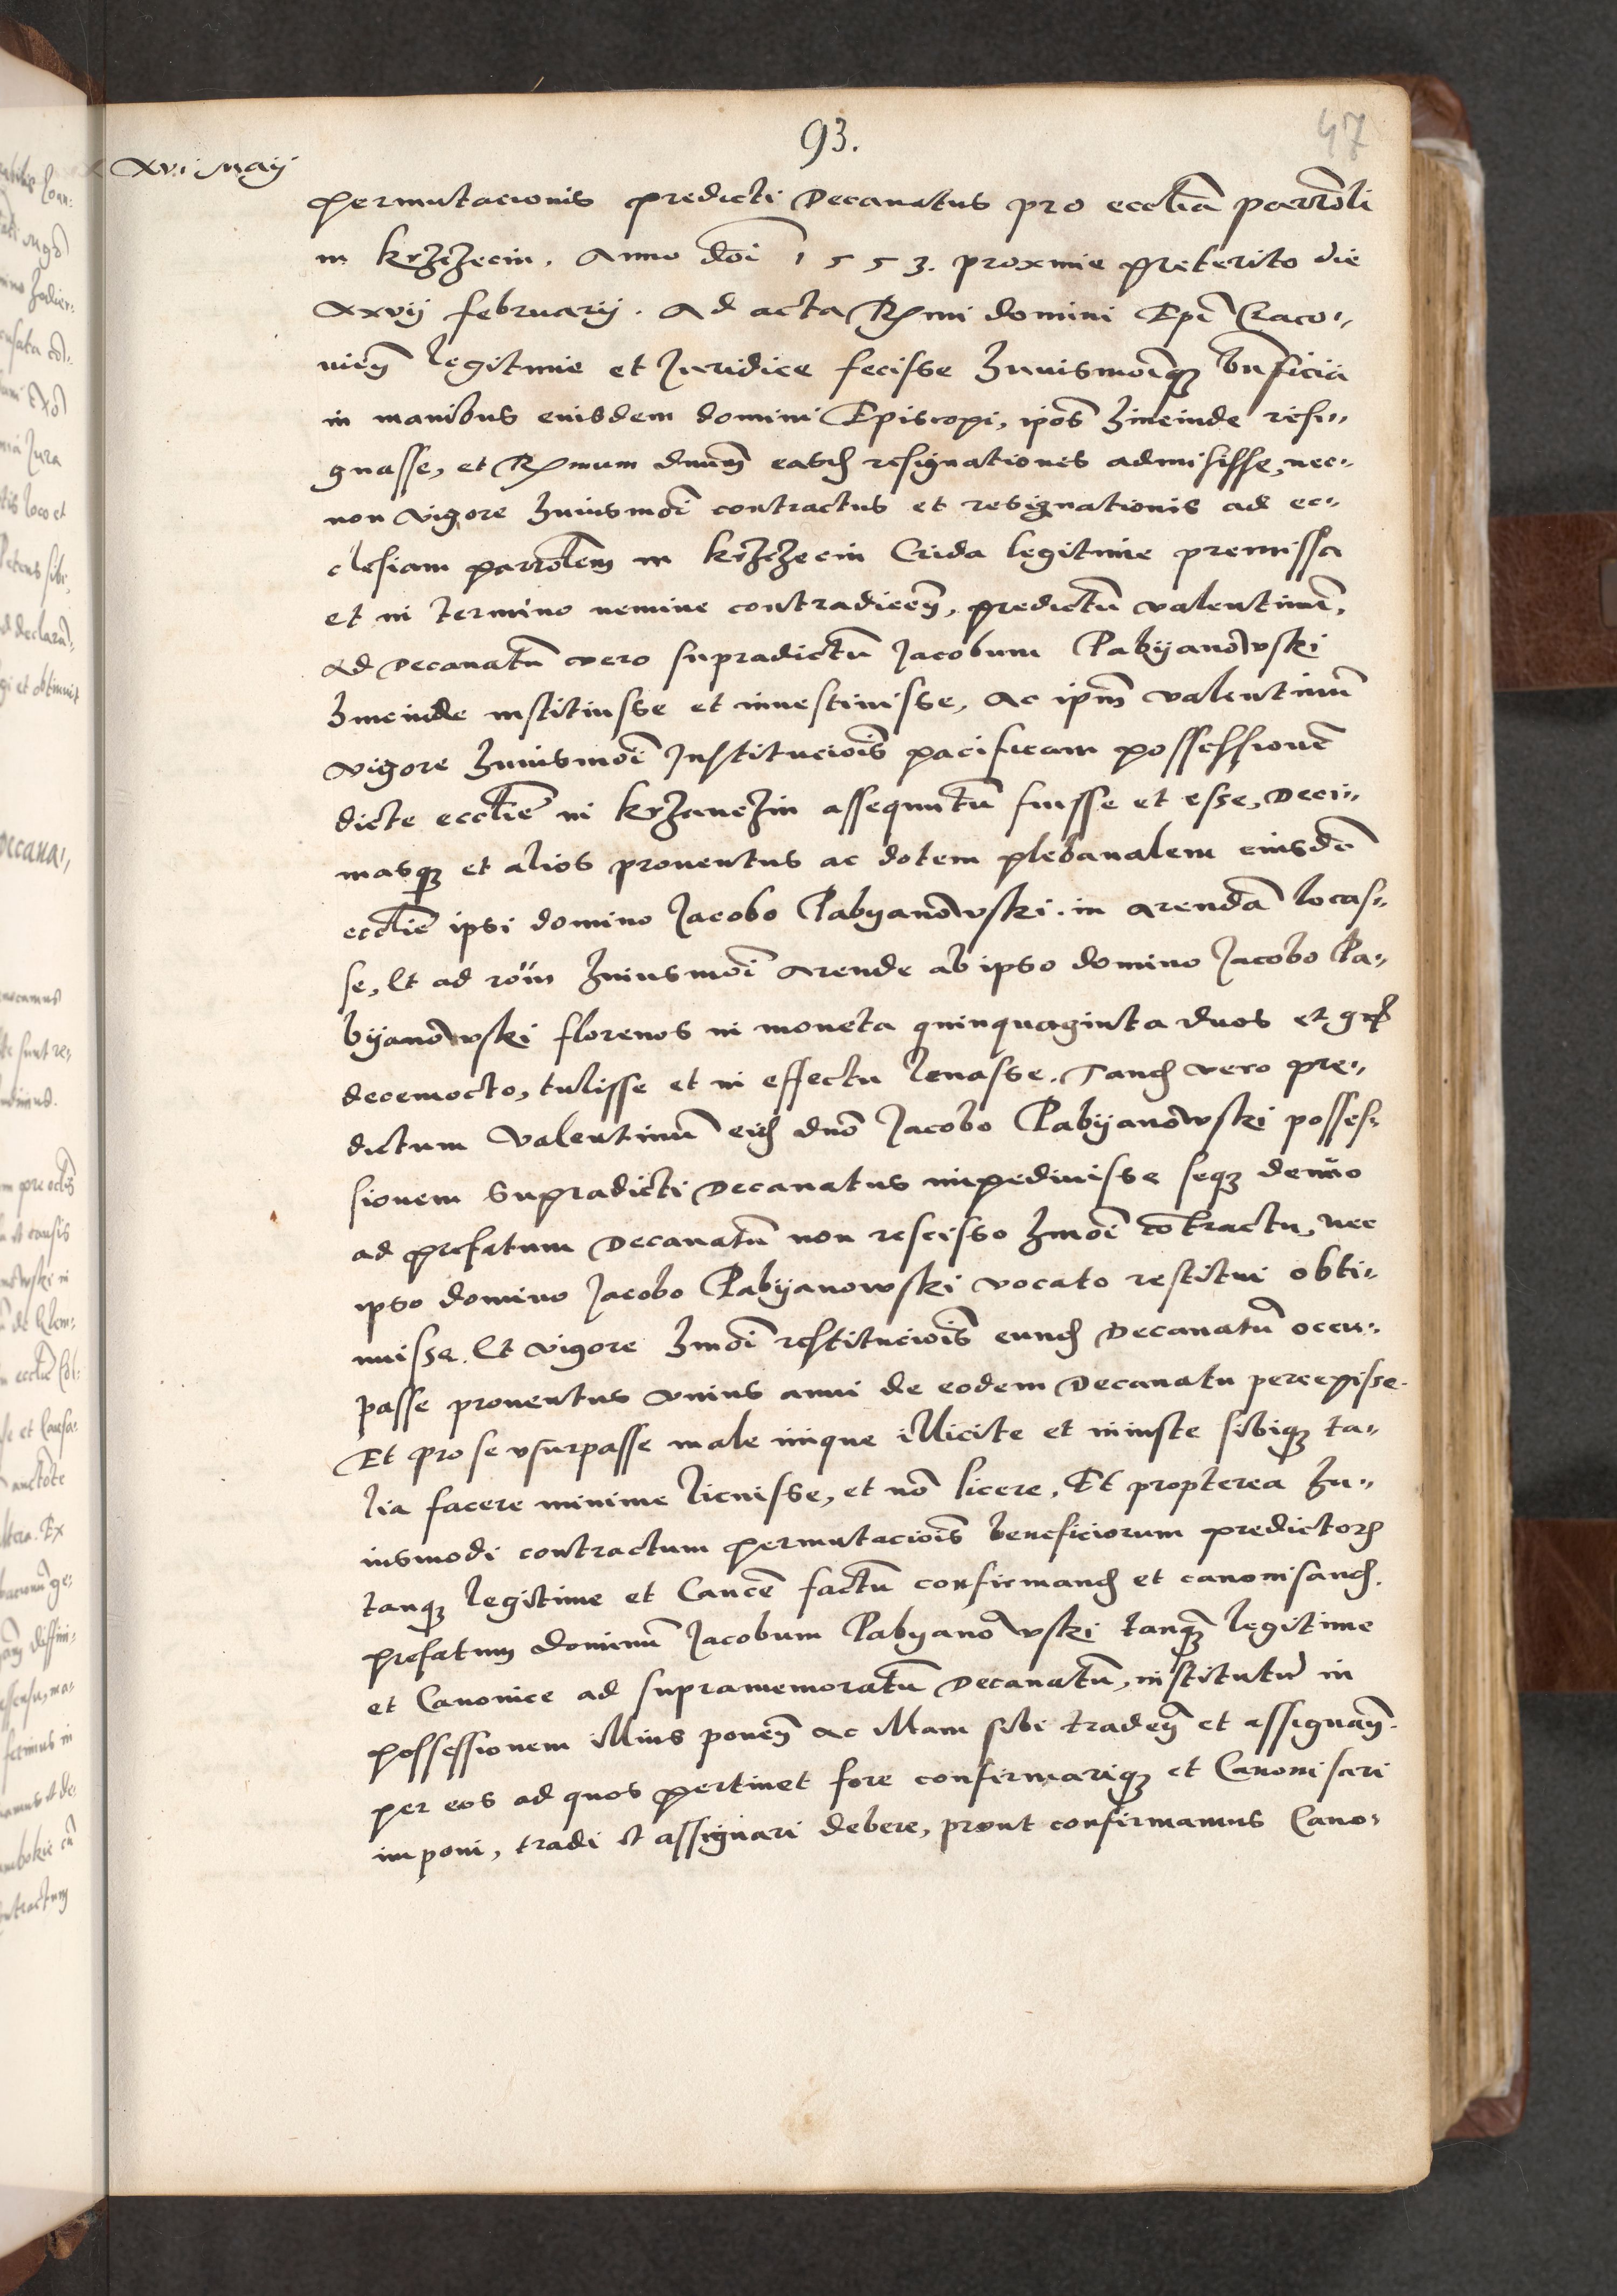 93.
47
xvi Maij
permutacionis predicti Decanatus pro eccliã parrõli
in krzczecin. Anno dõi 1553. proxime preterito die
xxvij februarij. Ad acta Rmi domini Epĩ Craco-
vieñ legitime et Iuridice fecisse huiusmoĩq bnficia
in manibus eiusdem domini Episcopi, ipõs hincinde resi-
gnasse, et Rmum dnum easd resignationes admisisse, nec-
non vigore huiusmoĩ contractus et resignationis ad ec-
clesiam parrolem in krzczecin Crida legitime premissa
et in termino nemine contradiceñ, predictũ valentinũ,
ad Decanatũ vero supradictũ Jacobum Pabyanowski
hincinde instituisse et inuestiuisse, ac ipm̃ valentinũ
vigore huiusmoĩ Institucioĩs pacificam possessionẽ
dicte ecclie in krzanczin assequutũ fuisse et esse, Deci-
masq et alios prouentus ac dotem plebanalem eiusdẽ
ecclie ipsi domino Jacobo Pabyanowski. in arendã locas-
se, Et ad rõm huiusmoĩ arende ab ipso domino Jacobo Pa-
byanowski florenos in moneta quinquaginta duos et gr
decemocto, tulisse et in effectu leuasse. Tand vero pre-
dictum valentinũ eid dnõ Jacobo Pabyanowski posses-
sionem supradicti Decanatus impediuisse seq denuo
ad prefatum Decanatũ non rescisso hmoĩ contractu, nec
ipso domino Jacobo Pabyanowski vocato restitui obti-
nuisse. Et vigore hmoĩ restitucioĩs eund Decanatũ occu-
passe prouentus vnius anni de eodem Decanatu percepisse.
Et pro se vsurpasse male inique illicite et iniuste sibiq ta-
lia facere minime licuisse, et nõ licere, Et propterea hu-
iusmodi contractum permutacioĩs beneficiorum predictor
tanq legitime et Cancẽ factũ confirmand et canonisand.
prefatum dominũ Jacobum Pabyanowski tanq legitime
et Canonice ad supramemoratũ Decanatũ, institutũ in
possessionem illius poneñ ac illam sibi tradeñ et assignañ.
per eos ad quos pertinet fore confirmariq et Canonisari
imponi, tradi et assignari debere, prout confirmamus Cano-